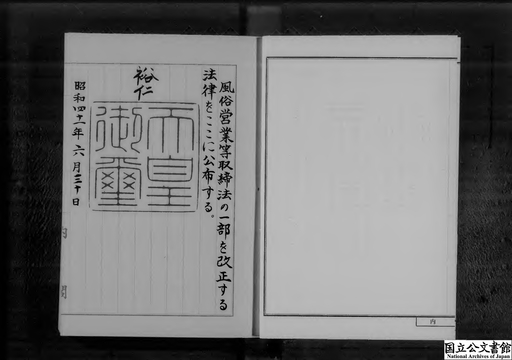 風俗営業等取締法の一部を改正する
法律をここに公布する。
裕仁
天皇
御璽
昭和四十一年六月三十日
内
国立公文書館
National Archives of Japan